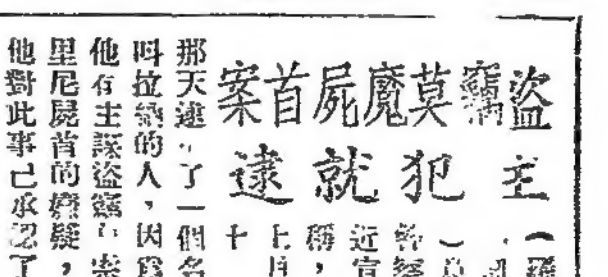 盜竊莫魔屍首案
主犯就逮
（羅
近官
稱，
七月
十
那天逮了一個名
呌拉的人，因爲
他有主謀盜竊
里尼屍首的嫌疑，
他對此事已承認了